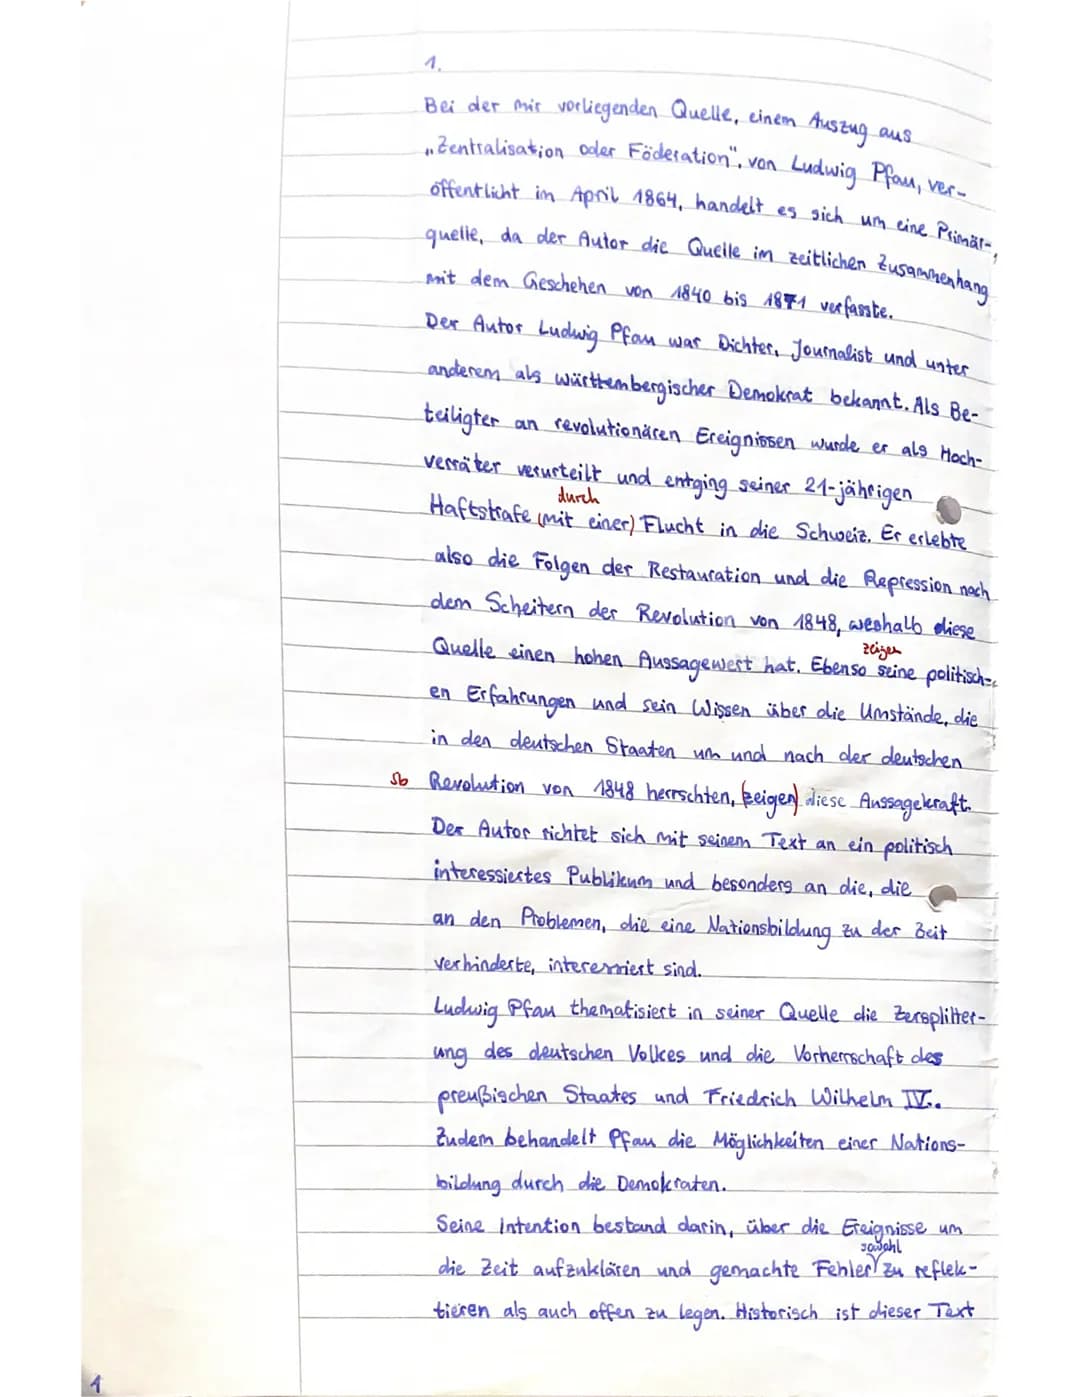 1.
Bei der mir vorliegenden Quelle, einem Auszug aus
„Zentralisation oder Föderation", von Ludwig Pfau, ver-
öffentlicht im April 1864, handelt es sich um eine Primär-
quelle, da der Autor die Quelle im zeitlichen Zusammenhang
mit dem Geschehen von 1840 bis 1871 verfasste.
Der Autor Ludwig Pfau war Dichter, Journalist und unter
anderem als württembergischer Demokrat bekannt. Als Be-
teiligter an revolutionären Ereignissen wurde er als Hoch-
verräter verurteilt und entging seiner 21-jährigen
durch
Haftstrafe (mit einer) Flucht in die Schweiz. Er erlebte
also die Folgen der Restauration und die Repression nach
dem Scheitern der Revolution von 1848, weshalb diese
zeigen
Quelle einen hohen Aussagewert hat. Ebenso seine politisch-
en Erfahrungen und sein Wissen über die Umstände, die
in den deutschen Staaten um und nach der deutschen
Sb Revolution von 1848 herrschten, (zeigen) diese Aussagekraft.
Der Autor richtet sich mit seinem Text an ein politisch
interessiertes Publikum und besonders an die, die
an den Problemen, die eine Nationsbildung zu der Zeit
verhinderte, interessiert sind.
Ludwig Pfau thematisiert in seiner Quelle die Zersplitter-
ung des deutschen Volkes und die Vorherrschaft des
preußischen Staates und Friedrich Wilhelm IV..
Zudem behandelt Pfau die Möglichkeiten einer Nations-
bildung durch die Demokraten.
Seine Intention bestand darin, über die Ereignisse um
sowahl
die Zeit aufzuklären und gemachte Fehler zu reflek-
tieren als auch offen zu legen. Historisch ist dieser Text
1